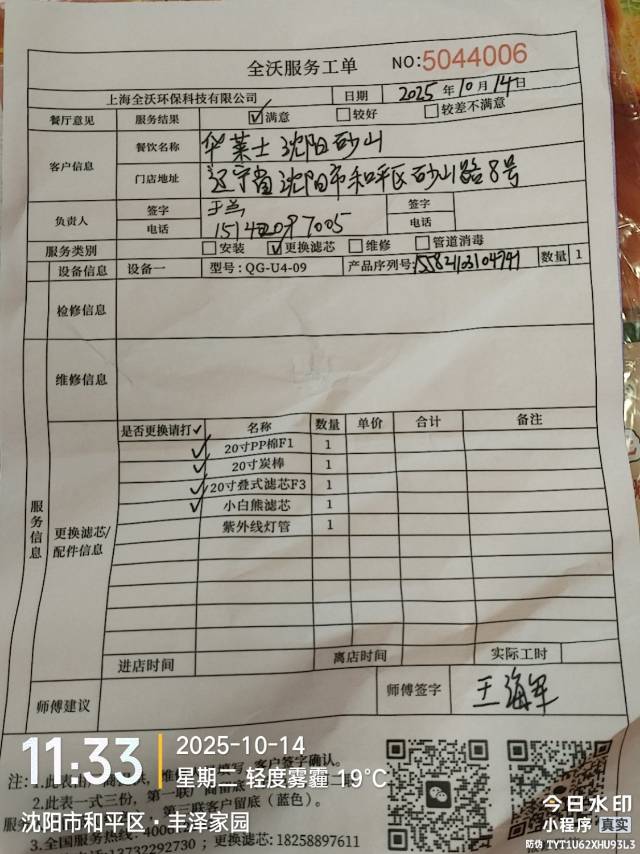 全沃服务工单 NO:5044006
上海全沃环保科技有限公司 日期 2025年10月14日
餐厅意见 服务结果 ☑满意 □较好 □较差不满意
客户信息 餐饮名称 华莱士沈阳砂山
门店地址 辽宁省沈阳市和平区砂山路8号
负责人 签字 签字
电话 电话
服务类别 □安装 ☑更换滤芯 □维修 □管道消毒
设备信息 设备一 型号:QG-U4-09 产品序列号: 数量 1
检修信息
维修信息
服务信息
更换滤芯/配件信息
是否更换请打✓ 名称 数量 单价 合计 备注
✓ 20寸PP棉F1 1
✓ 20寸炭棒 1
✓ 20寸叠式滤芯F3 1
✓ 小白熊滤芯 1
紫外线灯管 1
进店时间 离店时间 实际工时
师傅建议 师傅签字 王海军
11:33
2025-10-14
星期二 轻度雾霾 19℃
沈阳市和平区·丰泽家园
注:1.此表由 填写,客户签字确认。
2.此表一式三份,第一联
第三联客户留底(蓝色)。
3.全国服务热线:400
服务 13732292730 ; 18258897611
今日水印
小程序 真实
防伪 TYT1U62XHU93L3